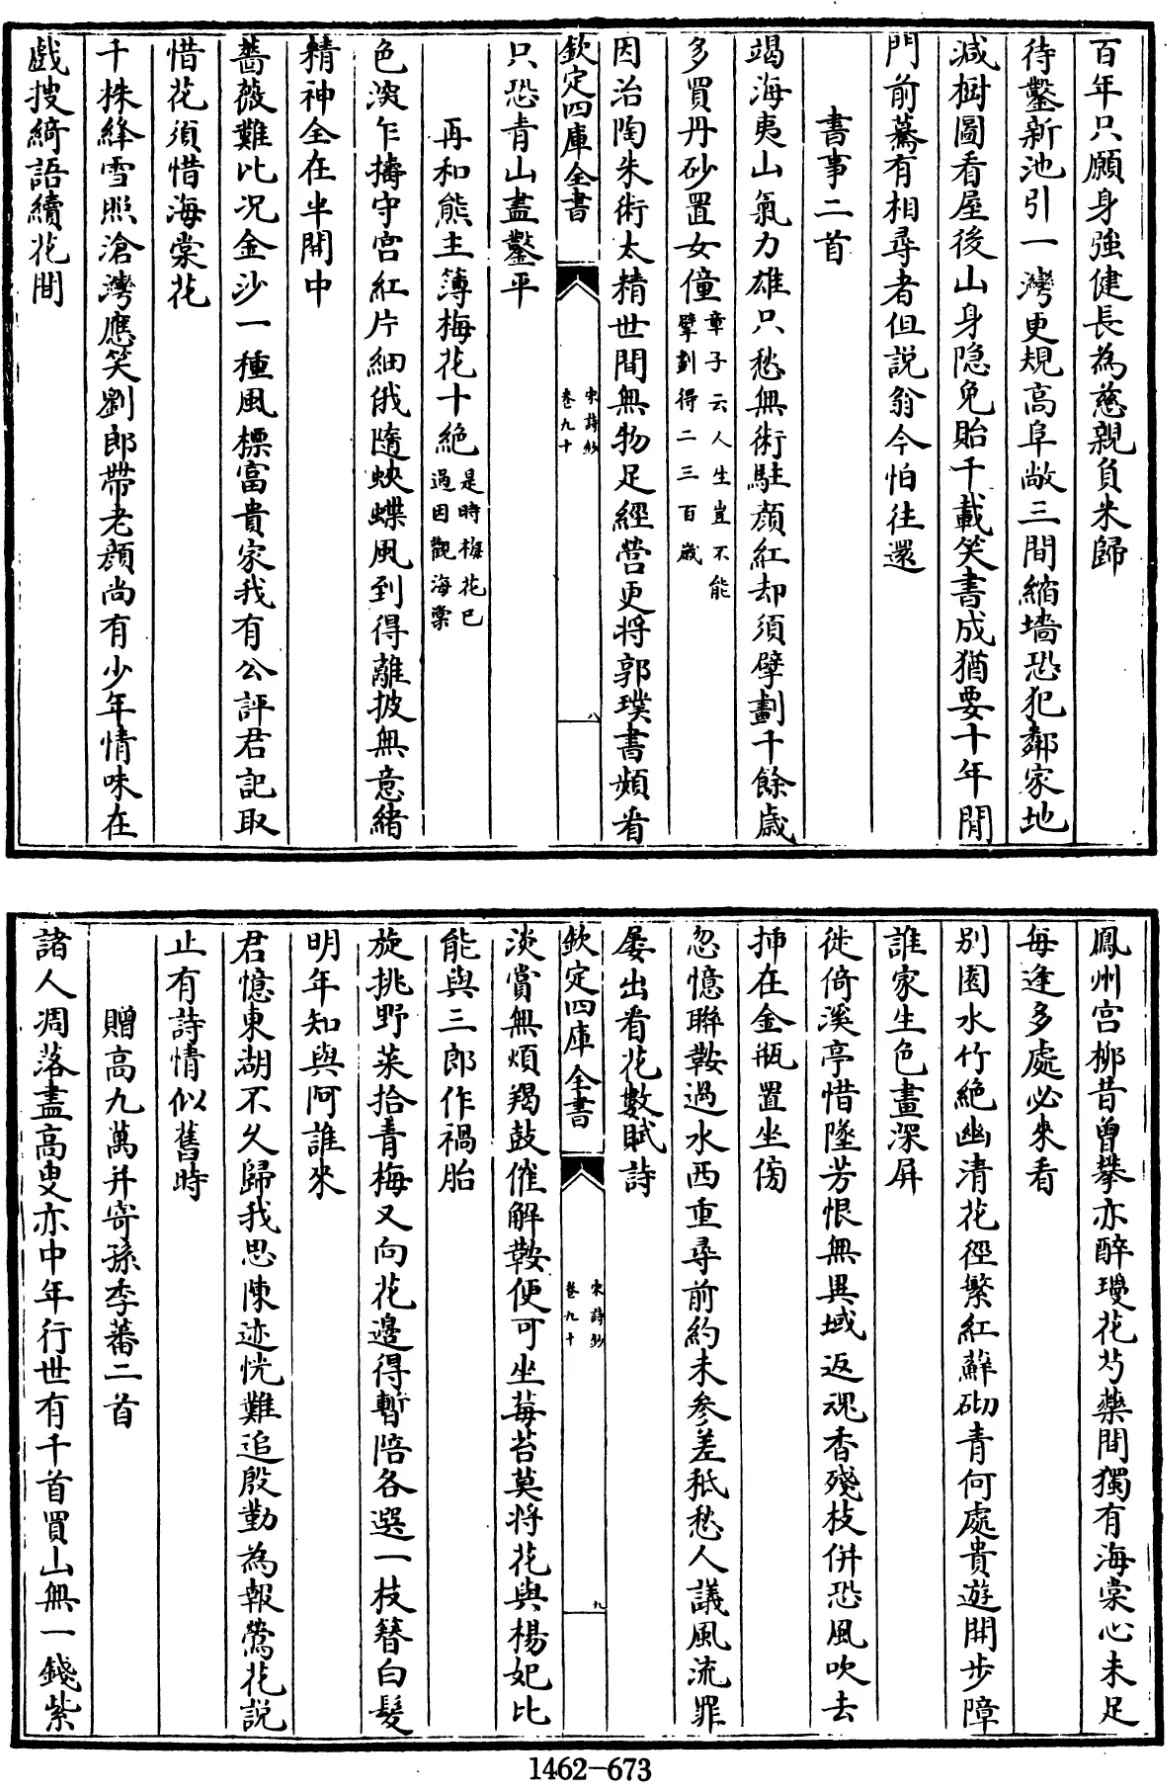 百年只願身強健長為慈親負米歸
待鑿新池引一灣更規高阜敞三間縮墻恐犯鄰家地
減樹圖看屋後山身隐免貽千載笑書成猶要十年閒
門前驀有相尋者但説翁今怕往還
書事二首
竭海夷山氣力雄只愁無術駐顔紅却須擘劃千餘歳
多買丹砂置女僮章子云人生豈不能擘劃得二三百歳
因治陶朱術太精世間無物足經營更将郭璞書頻看
欽定四庫全書
宋詩鈔
卷九十
八
只恐青山盡鑿平
再和熊主薄梅花十絶是時梅花已過因觀海棠
色深乍擣守宫紅片細俄隨蛺蝶風到得離披無意緒
精神全在半開中
薔薇難比况金沙一種風標富貴家我有公評君記取
惜花須惜海棠花
千株絳雪照滄灣應笑劉郎帶老顔尚有少年情味在
戲搜綺語續花間
鳳州宫栁昔曽攀亦醉瓊花芍藥間獨有海棠心未足
每逢多處必來看
别園水竹絶幽清花徑繁紅蘚砌青何處貴遊開步障
誰家生色畫深屏
徙倚溪亭惜墜芳恨無異域返魂香殘枝併恐風吹去
揷在金瓶置坐傍
忽憶聨鞍過水西重尋前約未参差秪愁人議風流罪
屡出看花數賦詩
欽定四庫全書
宋詩鈔
卷九十
九
淡賞無煩羯鼓催解鞍便可坐莓苔莫將花與楊妃比
能與三郎作禍胎
旋挑野菜拾青梅又向花邉得暫陪各選一枝簮白髮
明年知與阿誰來
君憶東湖不久歸我思陳迹恍難追殷勤為報鶯花説
止有詩情似舊時
贈高九萬并寄孫季蕃二首
諸人凋落盡高叟亦中年行世有千首買山無一錢紫
1462-673